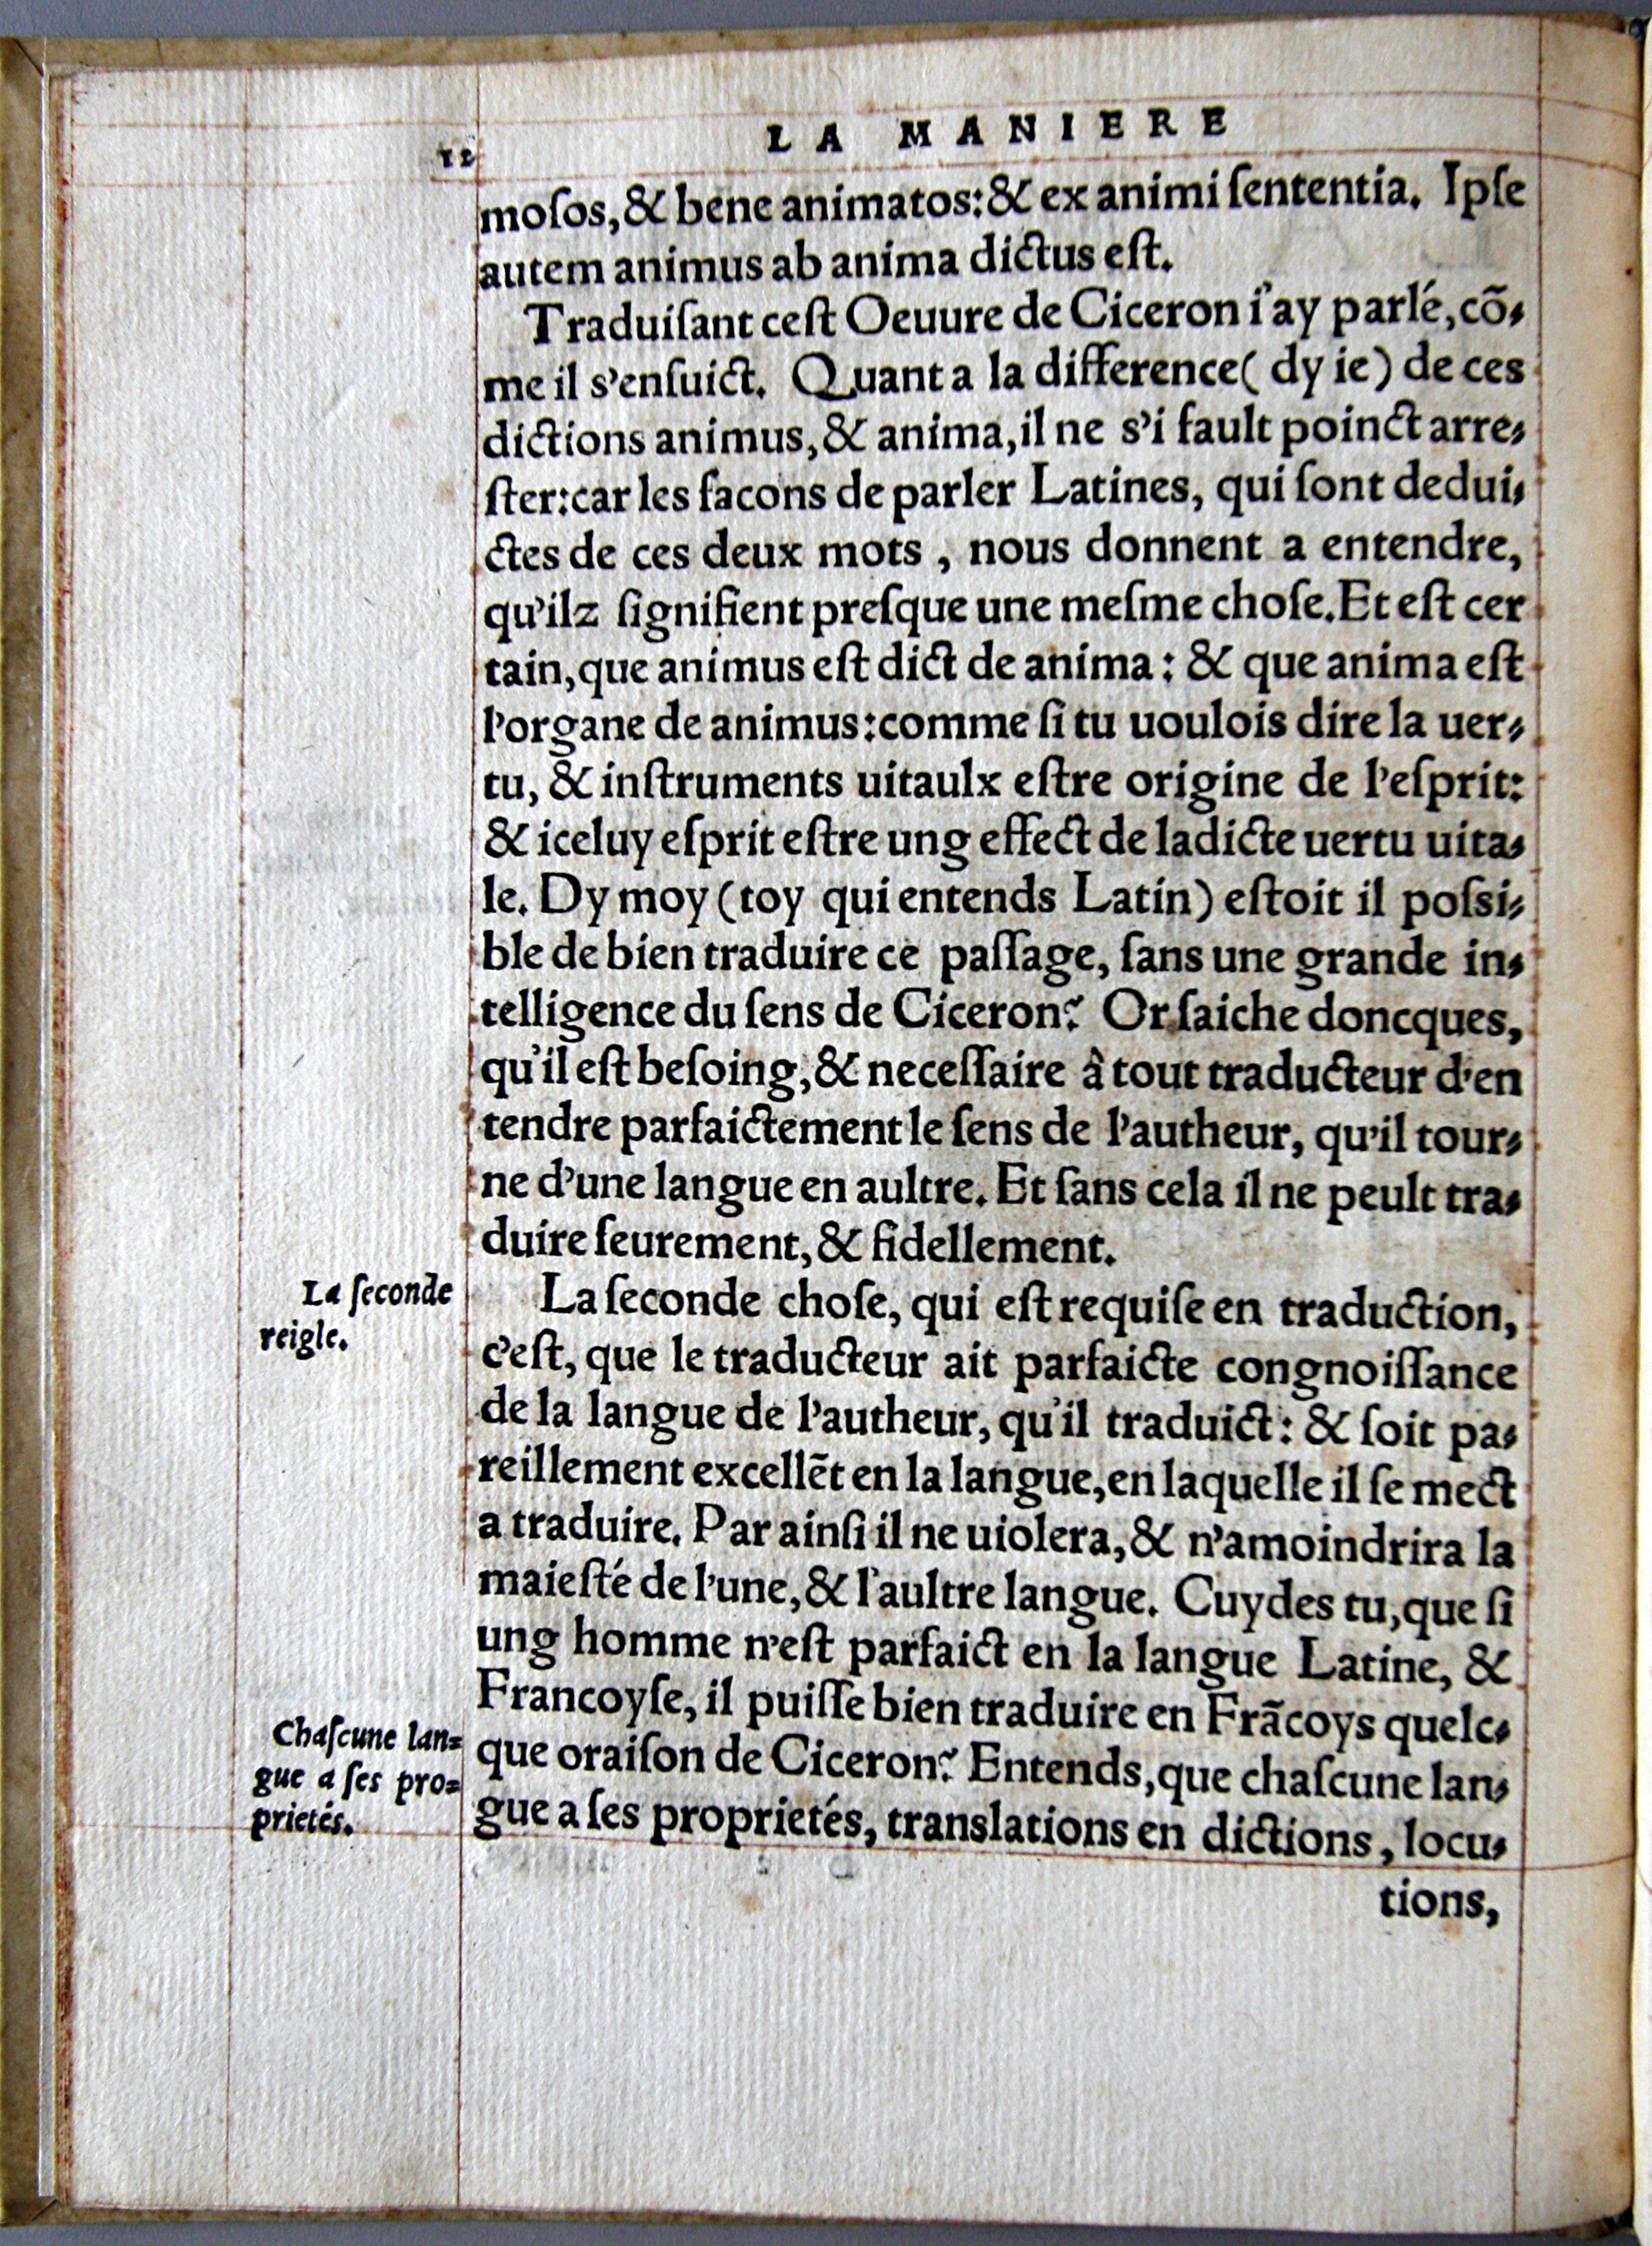 12
LA MANIERE
moſos, & bene animatos: & ex animi ſententia. Ipſe
autem animus ab anima dictus eſt.
Traduiſant ceſt Oeuure de Ciceron i'ay parlé, cō-
me il s'enſuict. Quant a la difference ( dy ie ) de ces
dictions animus, & anima, il ne s'i fault poinct arre-
ſter: car les facons de parler Latines, qui ſont dedui-
ctes de ces deux mots , nous donnent a entendre,
qu'ilz ſignifient preſque une meſme choſe. Et eſt cer
tain, que animus eſt dict de anima : & que anima eſt
l'organe de animus: comme ſi tu uoulois dire la uer-
tu, & inſtruments uitaulx eſtre origine de l'eſprit:
& iceluy eſprit eſtre ung effect de ladicte uertu uita-
le. Dy moy (toy qui entends Latin) eſtoit il poſsi-
ble de bien traduire ce paſſage, ſans une grande in-
telligence du ſens de Ciceron? Or ſaiche doncques,
qu'il eſt beſoing, & neceſſaire â tout traducteur d'en
tendre parfaictement le ſens de l'autheur, qu'il tour-
ne d'une langue en aultre. Et ſans cela il ne peult tra-
duire ſeurement, & fidellement.
La ſeconde
reigle.
La ſeconde choſe, qui eſt requiſe en traduction,
c'eſt, que le traducteur ait parfaicte congnoiſſance
de la langue de l'autheur, qu'il traduict : & ſoit pa-
reillement excellēt en la langue, en laquelle il ſe mect
a traduire. Par ainſi il ne uiolera, & n'amoindrira la
maieſté de l'une, & l'aultre langue. Cuydes tu, que ſi
ung homme n'eſt parfaict en la langue Latine, &
Francoyſe, il puiſſe bien traduire en Frãcoys quelc-
que oraiſon de Ciceron? Entends, que chaſcune lan-
gue a ſes proprietés, translations en dictions , locu-
Chaſcune lan=
gue a ſes pro=
prietés.
tions,